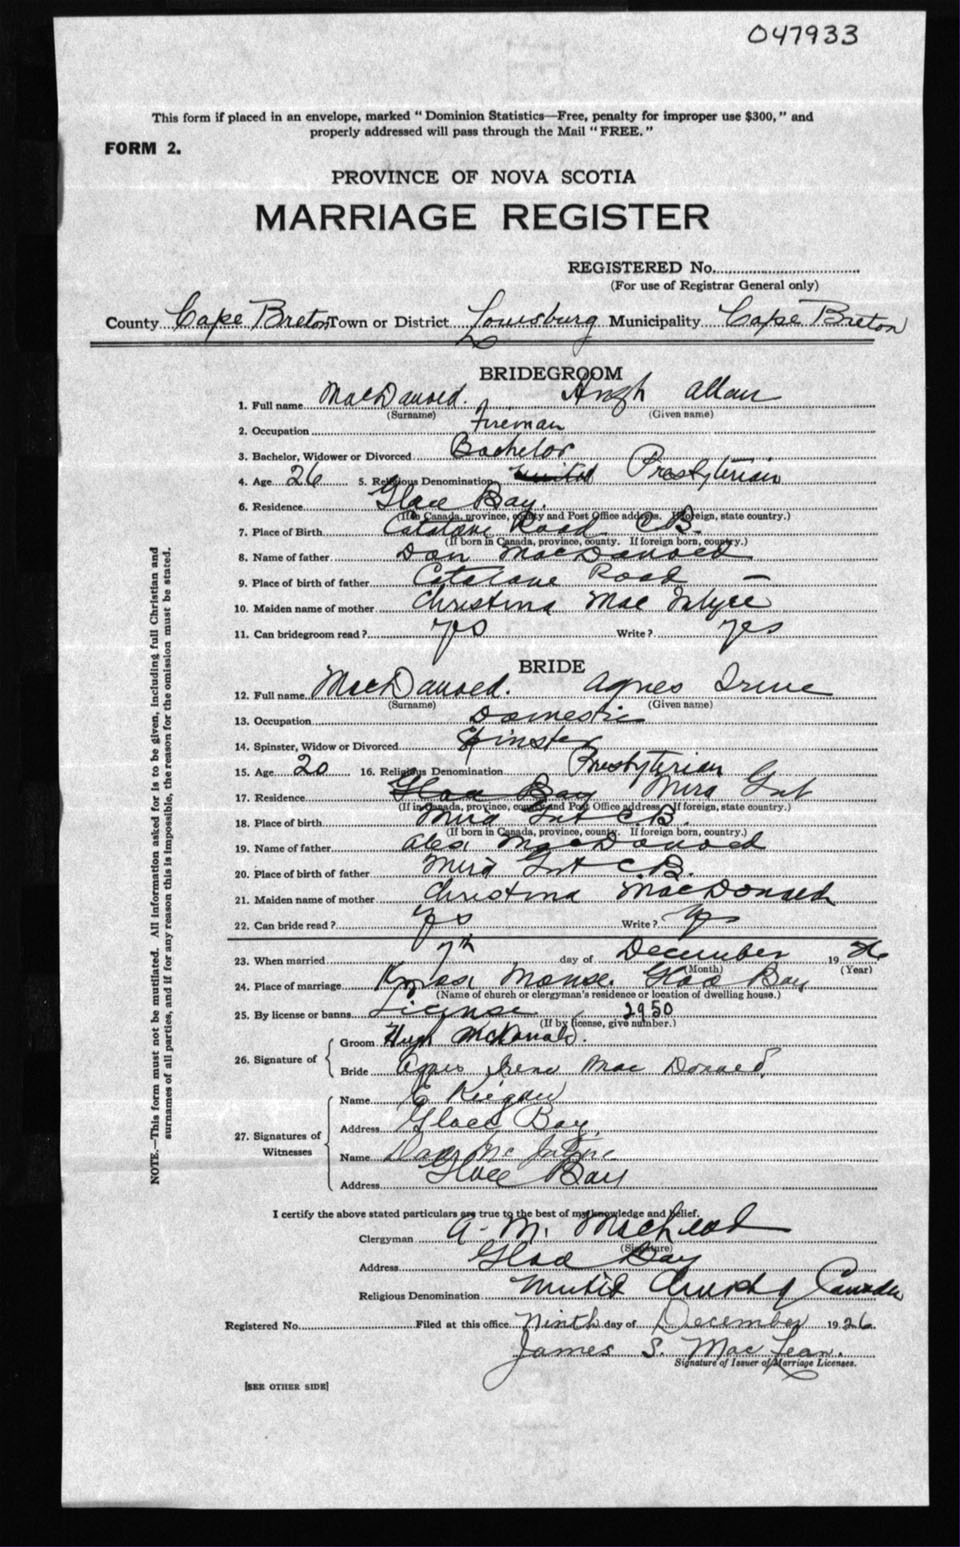 047933
This form if placed in an envelope, marked "Dominion Statistics—Free, penalty for improper use $300," and
properly addressed will pass through the Mail "FREE."
FORM 2.
PROVINCE OF NOVA SCOTIA
MARRIAGE REGISTER
REGISTERED No.
(For use of Registrar General only)
County Cape Breton Town or District Louisburg Municipality Cape Breton
BRIDEGROOM
1. Full name MacDonald. Hugh Allan
(Surname) (Given name)
2. Occupation Fireman
3. Bachelor, Widower or Divorced Bachelor
4. Age 26 5. Religious Denomination United Presbyterian
6. Residence Glace Bay.
(If in Canada, province, county and Post Office address. If foreign, state country.)
7. Place of Birth Catalone Road C.B.
(If born in Canada, province, county. If foreign born, country.)
8. Name of father Dan MacDonald
9. Place of birth of father Catalone Road —
10. Maiden name of mother Christina MacIntyre
11. Can bridegroom read? yes Write? yes
BRIDE
12. Full name MacDonald. Agnes Irene
(Surname) (Given name)
13. Occupation Domestic
14. Spinster, Widow or Divorced Spinster
15. Age 20 16. Religious Denomination Presbyterian
17. Residence Glace Bay Mira Gut
(If in Canada, province, county and Post Office address. If foreign, state country.)
18. Place of birth Mira Gut C.B.
(If born in Canada, province, county. If foreign born, country.)
19. Name of father Alex MacDonald
20. Place of birth of father Mira Gut C.B.
21. Maiden name of mother Christina MacDonald
22. Can bride read? yes Write? yes
23. When married 7th day of December 1926
(Month) (Year)
24. Place of marriage Knox Manse. Glace Bay
(Name of church or clergyman's residence or location of dwelling house.)
25. By license or banns License 2950
(If by license, give number.)
26. Signature of
Groom Hugh McDonald.
Bride Agnes Irene MacDonald
27. Signatures of Witnesses
Name
Address Glace Bay,
Name McIntyre
Address Glace Bay
I certify the above stated particulars are true to the best of my knowledge and belief.
Clergyman A. M. MacLeod
(Signature)
Address Glace Bay
Religious Denomination United Church of Canada
Registered No. Filed at this office Ninth day of December 1926.
James S. MacLean.
Signature of Issuer of Marriage Licenses.
[SEE OTHER SIDE]
NOTE.—This form must not be mutilated. All information asked for is to be given, including full Christian and
surnames of all parties, and if for any reason this is impossible, the reason for the omission must be stated.